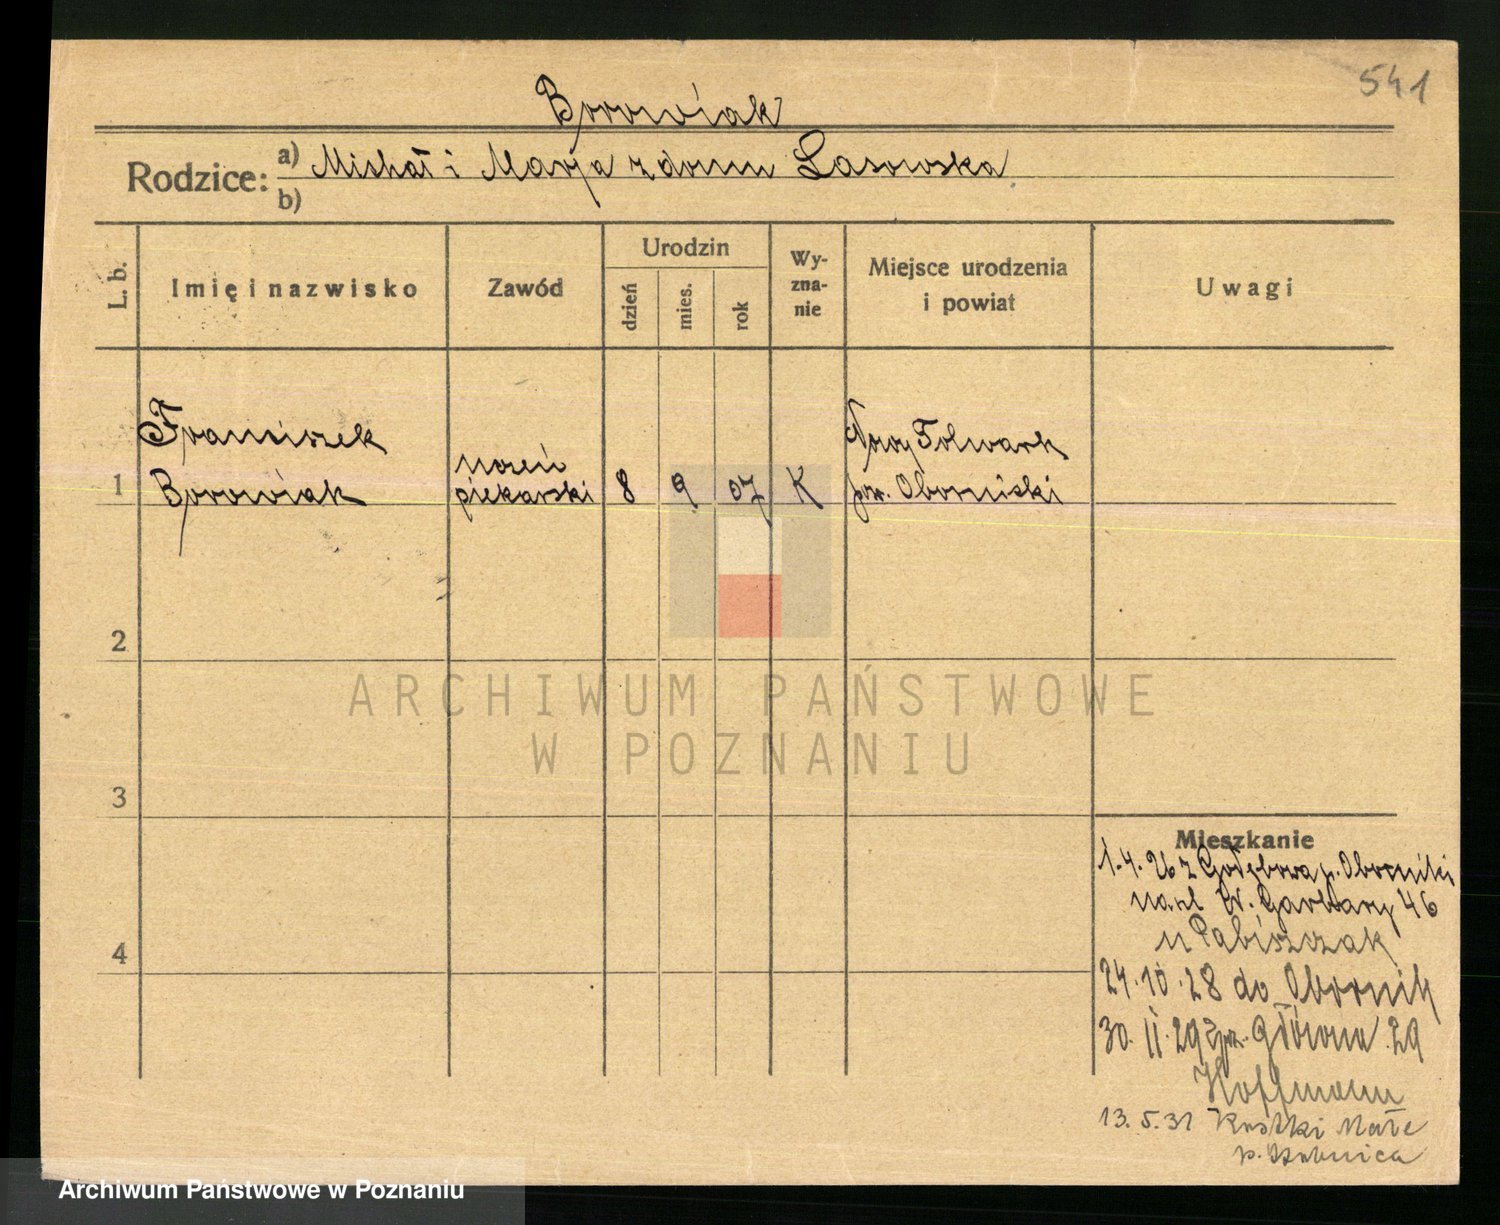 541
Borowiak
Rodzice: a) Michał i Marja z domu Lasowska
b)
L. b.
Imię i nazwisko
Zawód
Urodzin
dzień
mies.
rok
Wy-
zna-
nie
Miejsce urodzenia
i powiat
Uwagi
Franciszek
Borowiak
uczeń
piekarski
8
9
07
K
Nowy Folwark
pow. Obornicki
1
2
3
4
ARCHIWUM PAŃSTWOWE
W POZNANIU
Mieszkanie
1.4.26 z Gołębowa p. Oborniki
na ul. W. Garbary 46
u Pabiszczak
24.10.28 do Obornik
30.II.29 Główna 29
Hoffmann
13.5.31 Małe
p.
Archiwum Państwowe w Poznaniu